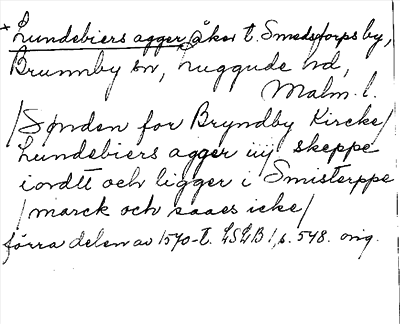 * Lundebiers agger, åker t. Smedstorps by,
Brunnby sn, Luggude hd,
Malm. l.
/Sønden for Bryndby Kircke/
Lundebiers agger iiij skeppe
iordtt och ligger i Smisterppe
/marck och saaes icke/
förra delen av 1570-t. LSLB I, s. 548. orig.